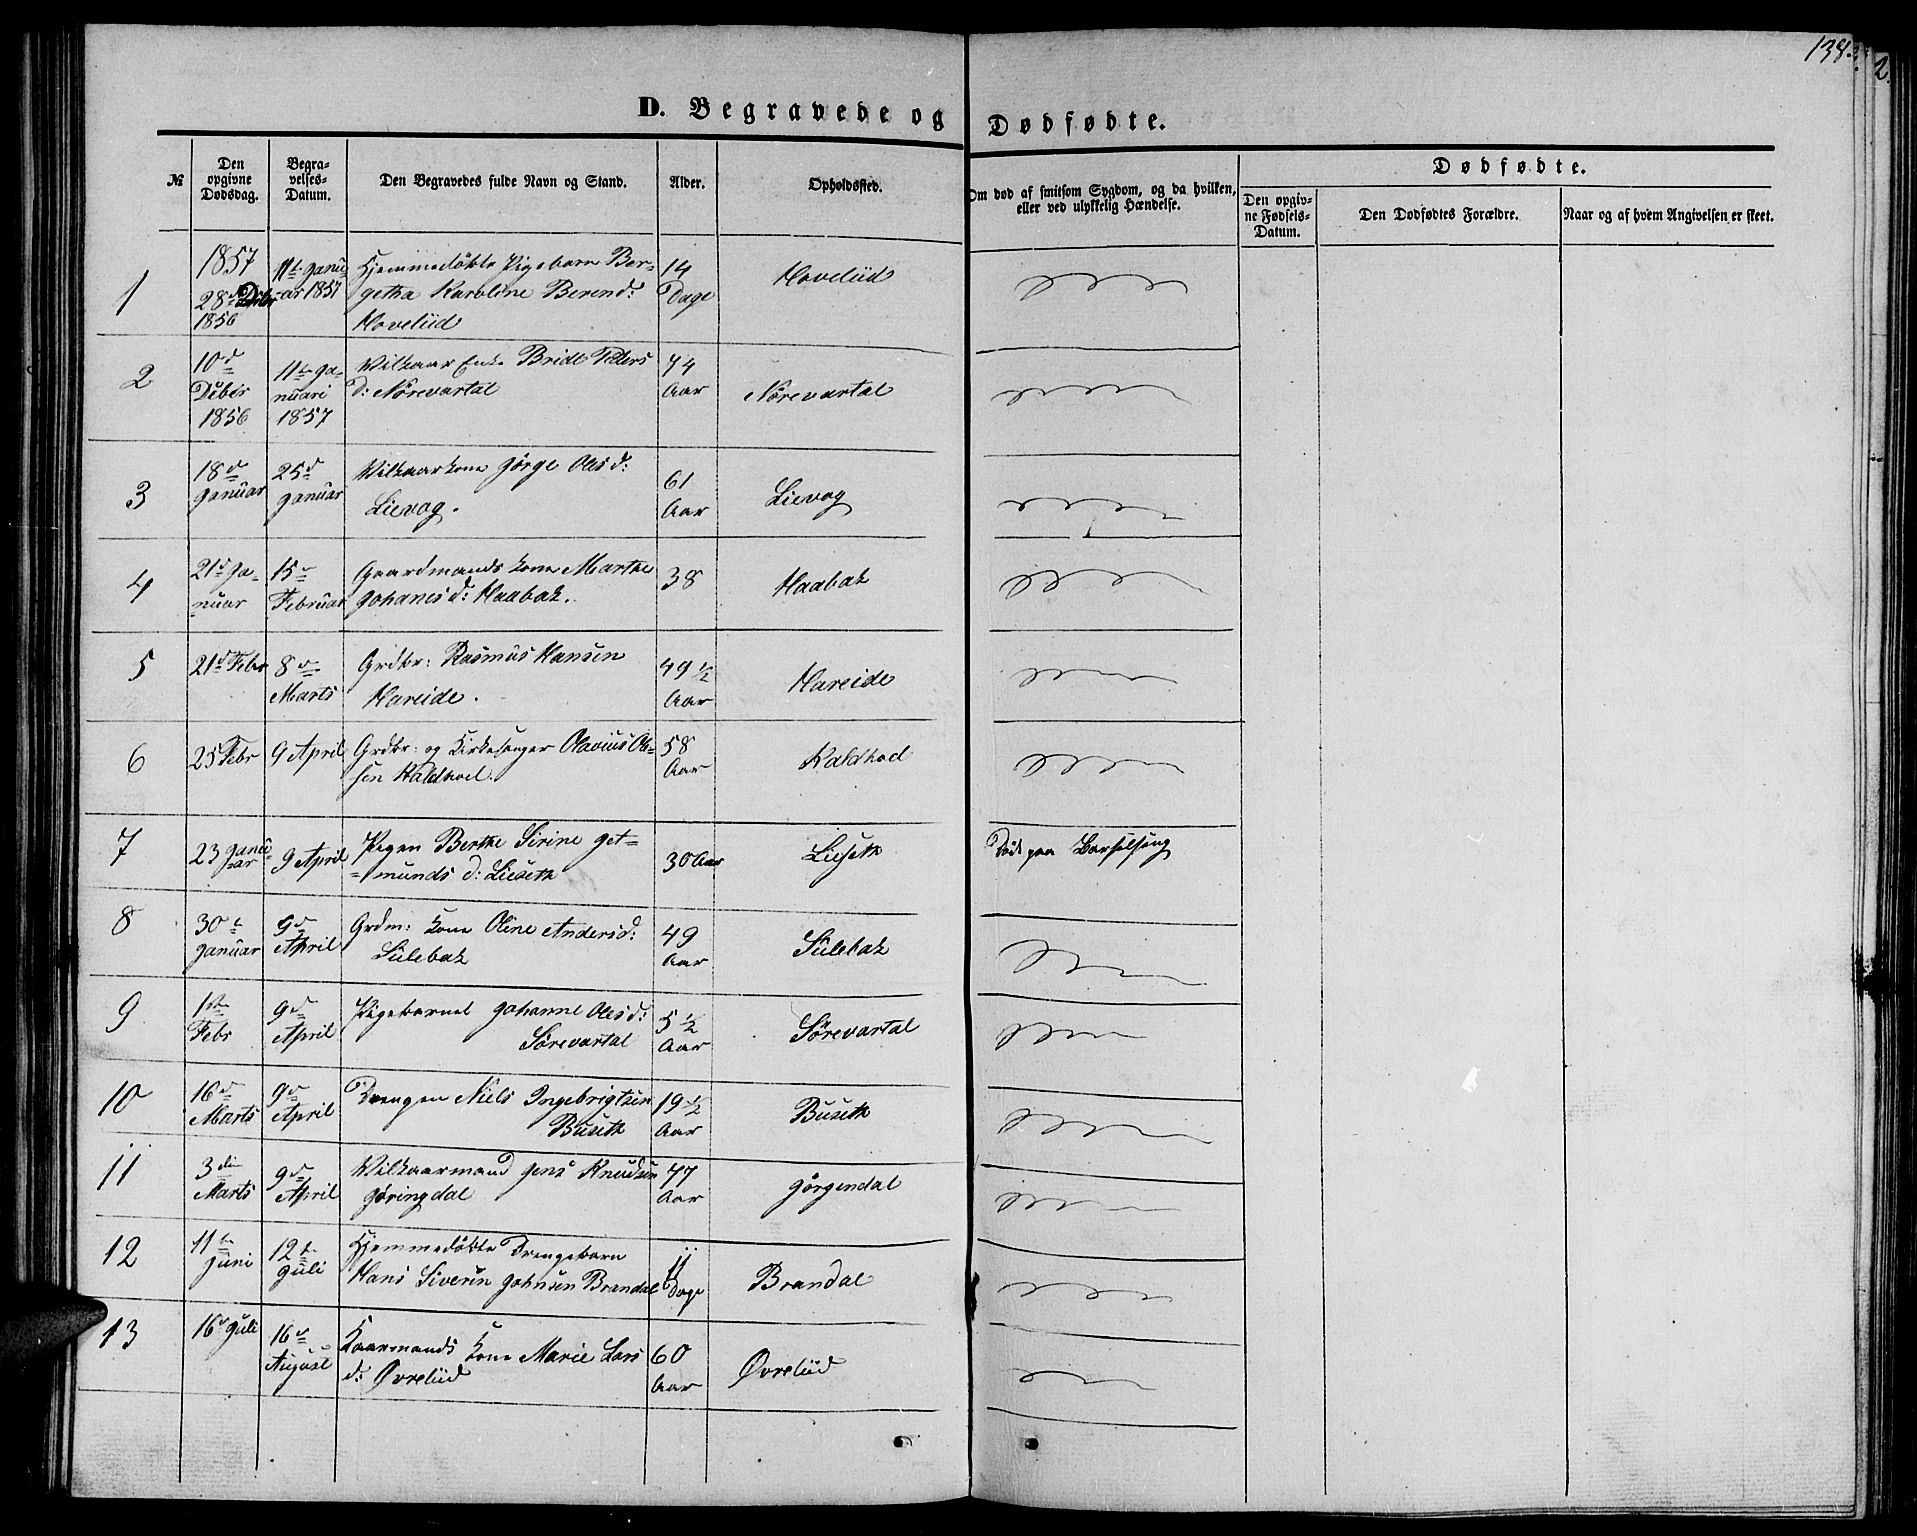 138.
2.
D. Begravede og Dødfødte.
№
Den opgivne Dødsdag.
Begravelses-Datum.
Den Begravedes fulde Navn og Stand.
Alder.
Opholdssted.
Om død af smitsom Sygdom, og da hvilken, eller ved ulykkelig Hændelse.
Dødfødte.
Den opgivne Fødsels-Datum.
Den Dødfødtes Forældre.
Naar og af hvem Angivelsen er skeet.
1857
1 28d Debr 1856 11te Januar 1857 Hjemmedøbte Pigebarn Bergetha Karoline Berend: Hovelüd 14 Dage Hovelüd
2 10d Deber 1856 11te Januari 1857 Vilkaar Enke Bride Peders d: Nörevartal 74 Aar Nörevartal
3 18d Januar 25d Januar Vilkaarkone Jörge Oles d: Lievog. 61 Aar Lievog
4 21d Januar 15d Februar Gaardmands kone Marthe Johanes d: Haabak. 38 Haabak
5 21d Febr 8d Marts Grdbr: Rasmus Hansen Hareide. 49 1/2 Aar Hareide
6 25 Febr 9 April Grdbr: og Kirkesanger Olavius Olsen Kaldhoel. 58 Aar Kaldhoel
7 23 Januar 9 April Pigen Berthe Sirine Jetmunds d: Lieseth 30 Aar Lieseth Död paa Barselseng
8 30te Januar 9d April Grdm: kone Oline Anders d: Sulebak 49 Aar Sulebak
9 1ste Febr 9d April Pigebarnet Johanne Oles d: Sörevartal 5 1/2 Aar Sörevartal
10 16d Marts 9d April Drengen Niels Ingebrigtsen Buseth 19 1/2 Aar Buseth
11 3die Marts 9d April Vilkaarmand Jens Knudsen Jøringdal 77 Aar Jörgendal
12 11te Juni 12te Juli Hjemmedöbte Drengebarn Hans Siverin Johnsen Brandal Dage Brandal
13 16d Juli 16d August Kaarmands Kone Marie Lars d: Øvrelüd 60 Aar Øvrelüd